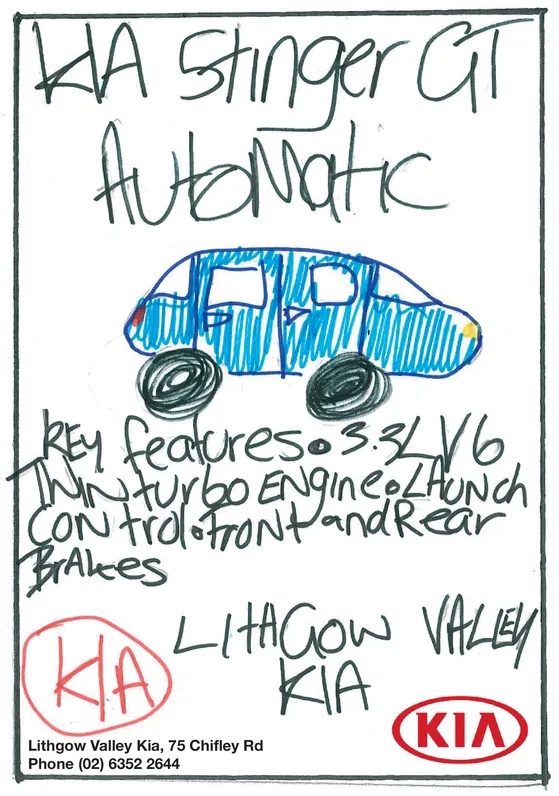 KIA Stinger GT
AutoMatic
KEy features • 3.3L V6
TWIN turbo ENgine • LAuNch
CONtrol • frONt and Rear
BrAkes
LitHGow VALLEY
KIA
KIA
KIA
Lithgow Valley Kia, 75 Chifley Rd
Phone (02) 6352 2644